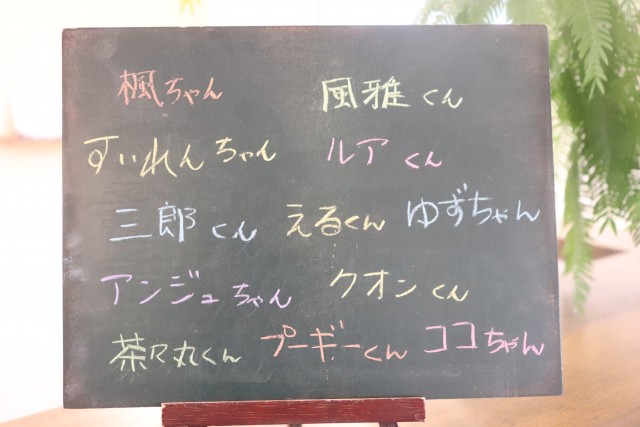 楓ちゃん 風雅くん
すいれんちゃん ルアくん
三郎くん えるくん ゆずちゃん
アンジュちゃん クオンくん
茶々丸くん プーギーくん ココちゃん